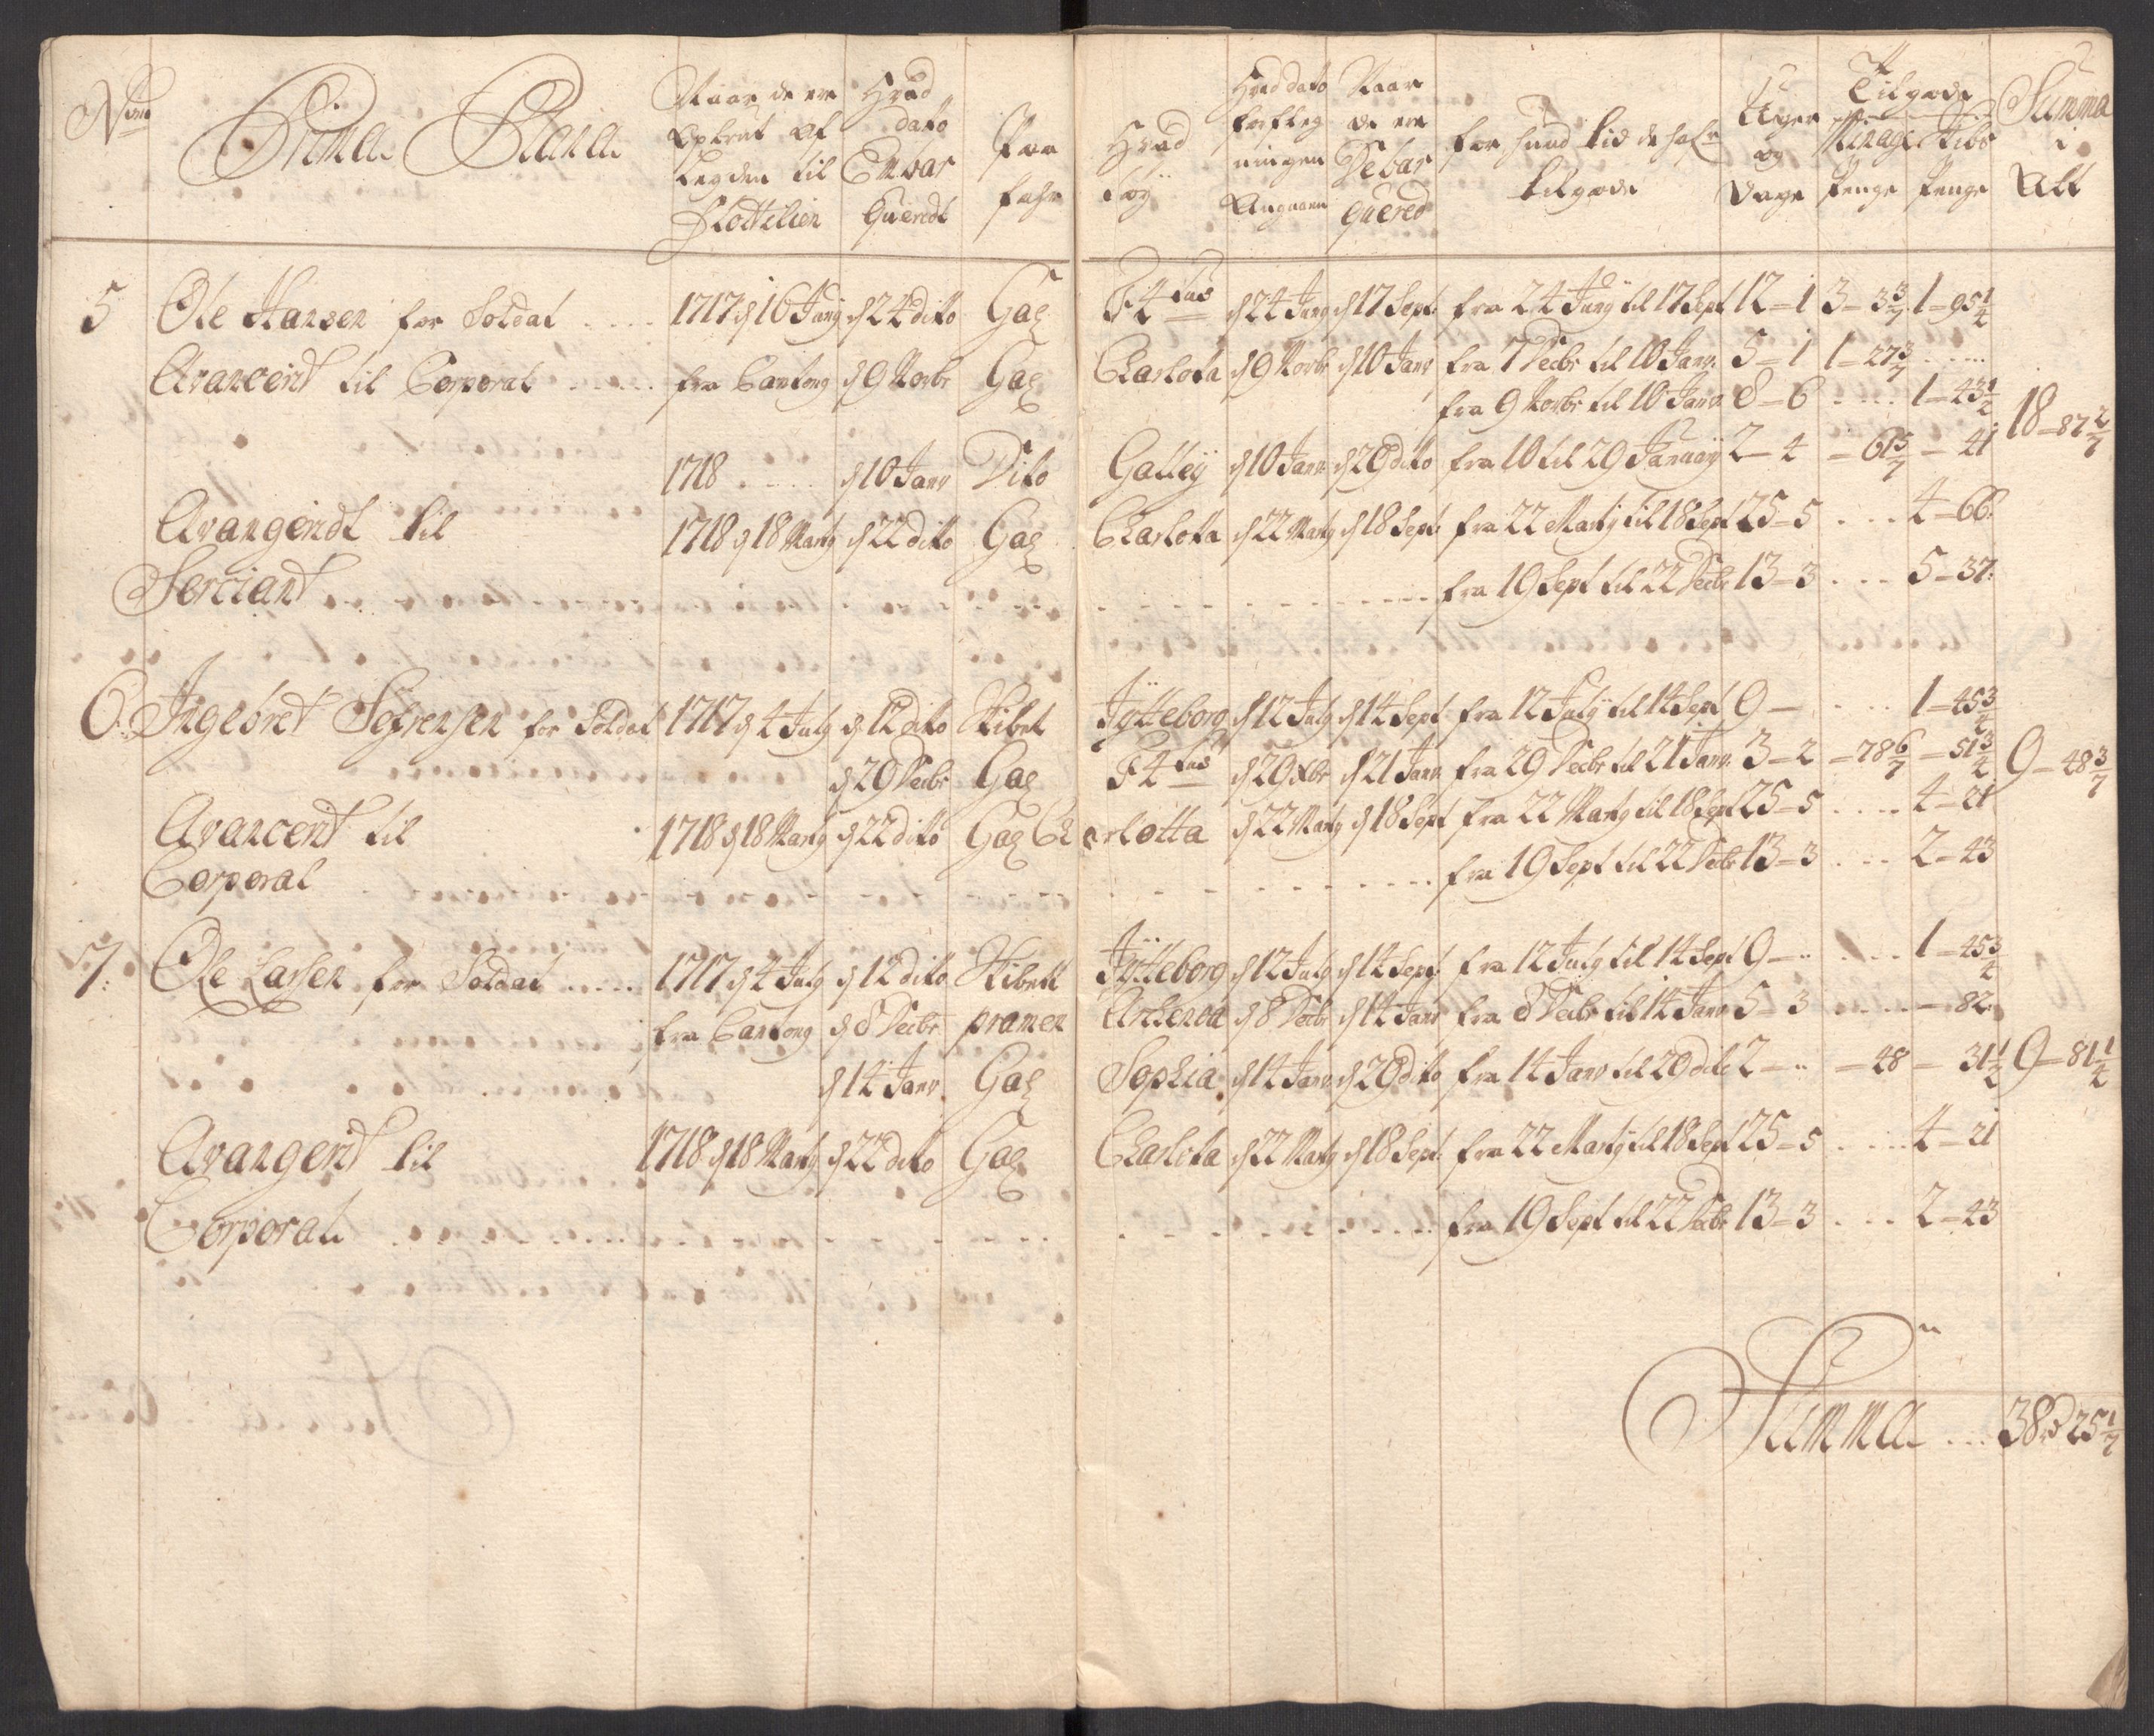 Num
Prima Plana
Naar de ere
Opbrut af
Legden til
Flottilien
Hvad
dato
Embar
quered
Paa
fahr
Hvad
töy
Hvad dato
forfleg
ningen
Angaaer
Naar
de ere
Debar
quered
for hvad tid de hafr
tilgode
Uger
og
Dage
Tilgode
Minage
Penge
Skibs
Penge
Summa
i
Alt
5 Ole Hansen for Soldat .... 1717 d 16 Junij d 24 dito Gal F4tus d 24 Junij d 17 Sept. fra 24 Junij til 17 Sept 12 – 1 3 – 3 3/7 1 – 95 1/4
Avancerit til Corporal ..... fra Cantong d 9 Novbr Gal Charlota d 9 Novbr d 10 Janv fra 7 Decbr til 10 Janv. 5 – 1 1 – 27 3/7 .....
fra 9 Novbr til 10 Janv. 8 – 6 .... 1 – 43 1/2 18 – 87 2/7
1718 .... d 10 Janv Dito Galley d 10 Janv. d 29 dito fra 10 til 29 January 2 – 4 – 61 5/7 – 41
Avangerdt til 1718 d 18 Martij d 22 dito Gal Charlota d 22 Martij d 18 Sept. fra 22 Martij til 18 Sept 25 – 5 .... 4 – 66.
Serciant ..... fra 19 Sept til 22 Decbr 13 – 3 .... 5 – 37.
6. Ingebret Sofrensen for Soldat 1717 d 4 July d 12 dito Skibet Jytteborg d 12 July d 14 Sept fra 12 July til 14 Sept 9 – .... 1 – 45 3/4
d 29 Decbr Gal F4tus d 29 Xbr d 21 Janv fra 29 Decbr til 21 Janv. 3 – 2 – 78 6/7 – 51 3/4 9 – 48 3/7
Avancert til 1718 d 18 Martij d 22 dito Gal Charlotta d 22 Martij d 18 Sept fra 22 Martij til 18 Sept 25 – 5 .... 4 – 21
Corporal ..... fra 19 Sept til 22 Decbr 13 – 3 .... 2 – 43
7. Ole Larsen for Soldat ..... 1717 d 4 July d 12 dito Skibett Jytteborg d 12 July d 14 Sept. fra 12 July til 14 Sept 9 – .. .... 1 – 45 3/4
fra Cantong d 8 Decbr pramen Archenoa d 8 Decbr d 14 Janv fra 8 Decbr til 14 Janv 5 – 3 ..... – 82.
d 14 Janv. Gal Sophia d 14 Janv d 29 dito fra 14 Janv til 29 dito 2 – .. – 48 – 31 1/2 9 – 81 1/4
Avangerit til 1718 d 18 Martij d 22 dito Gal Charlota d 22 Martij d 18 Sept. fra 22 Martij til 18 Sept 25 – 5 .... 4 – 21
Corporal. ..... fra 19 Sept til 22 Decbr 13 – 3 .... 2 – 43
Summa ... 38 rd 25 1/7